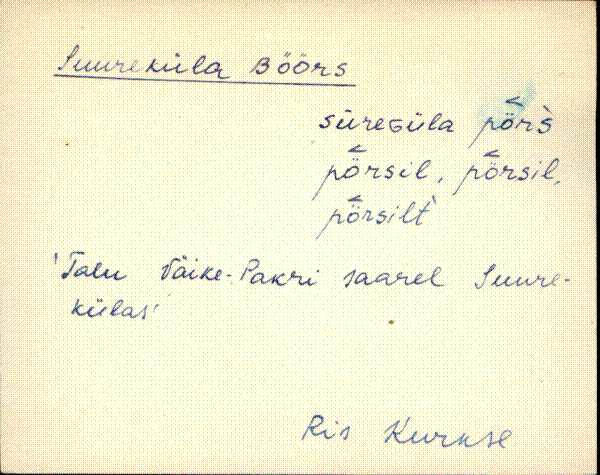 Suureküla Böörs
sūreGüla pȫr̀s
pȫrsil, pȫrsil,
pȫrsilt
'Talu Väike-Pakri saarel Suure-
külas'
Ris Kurkse